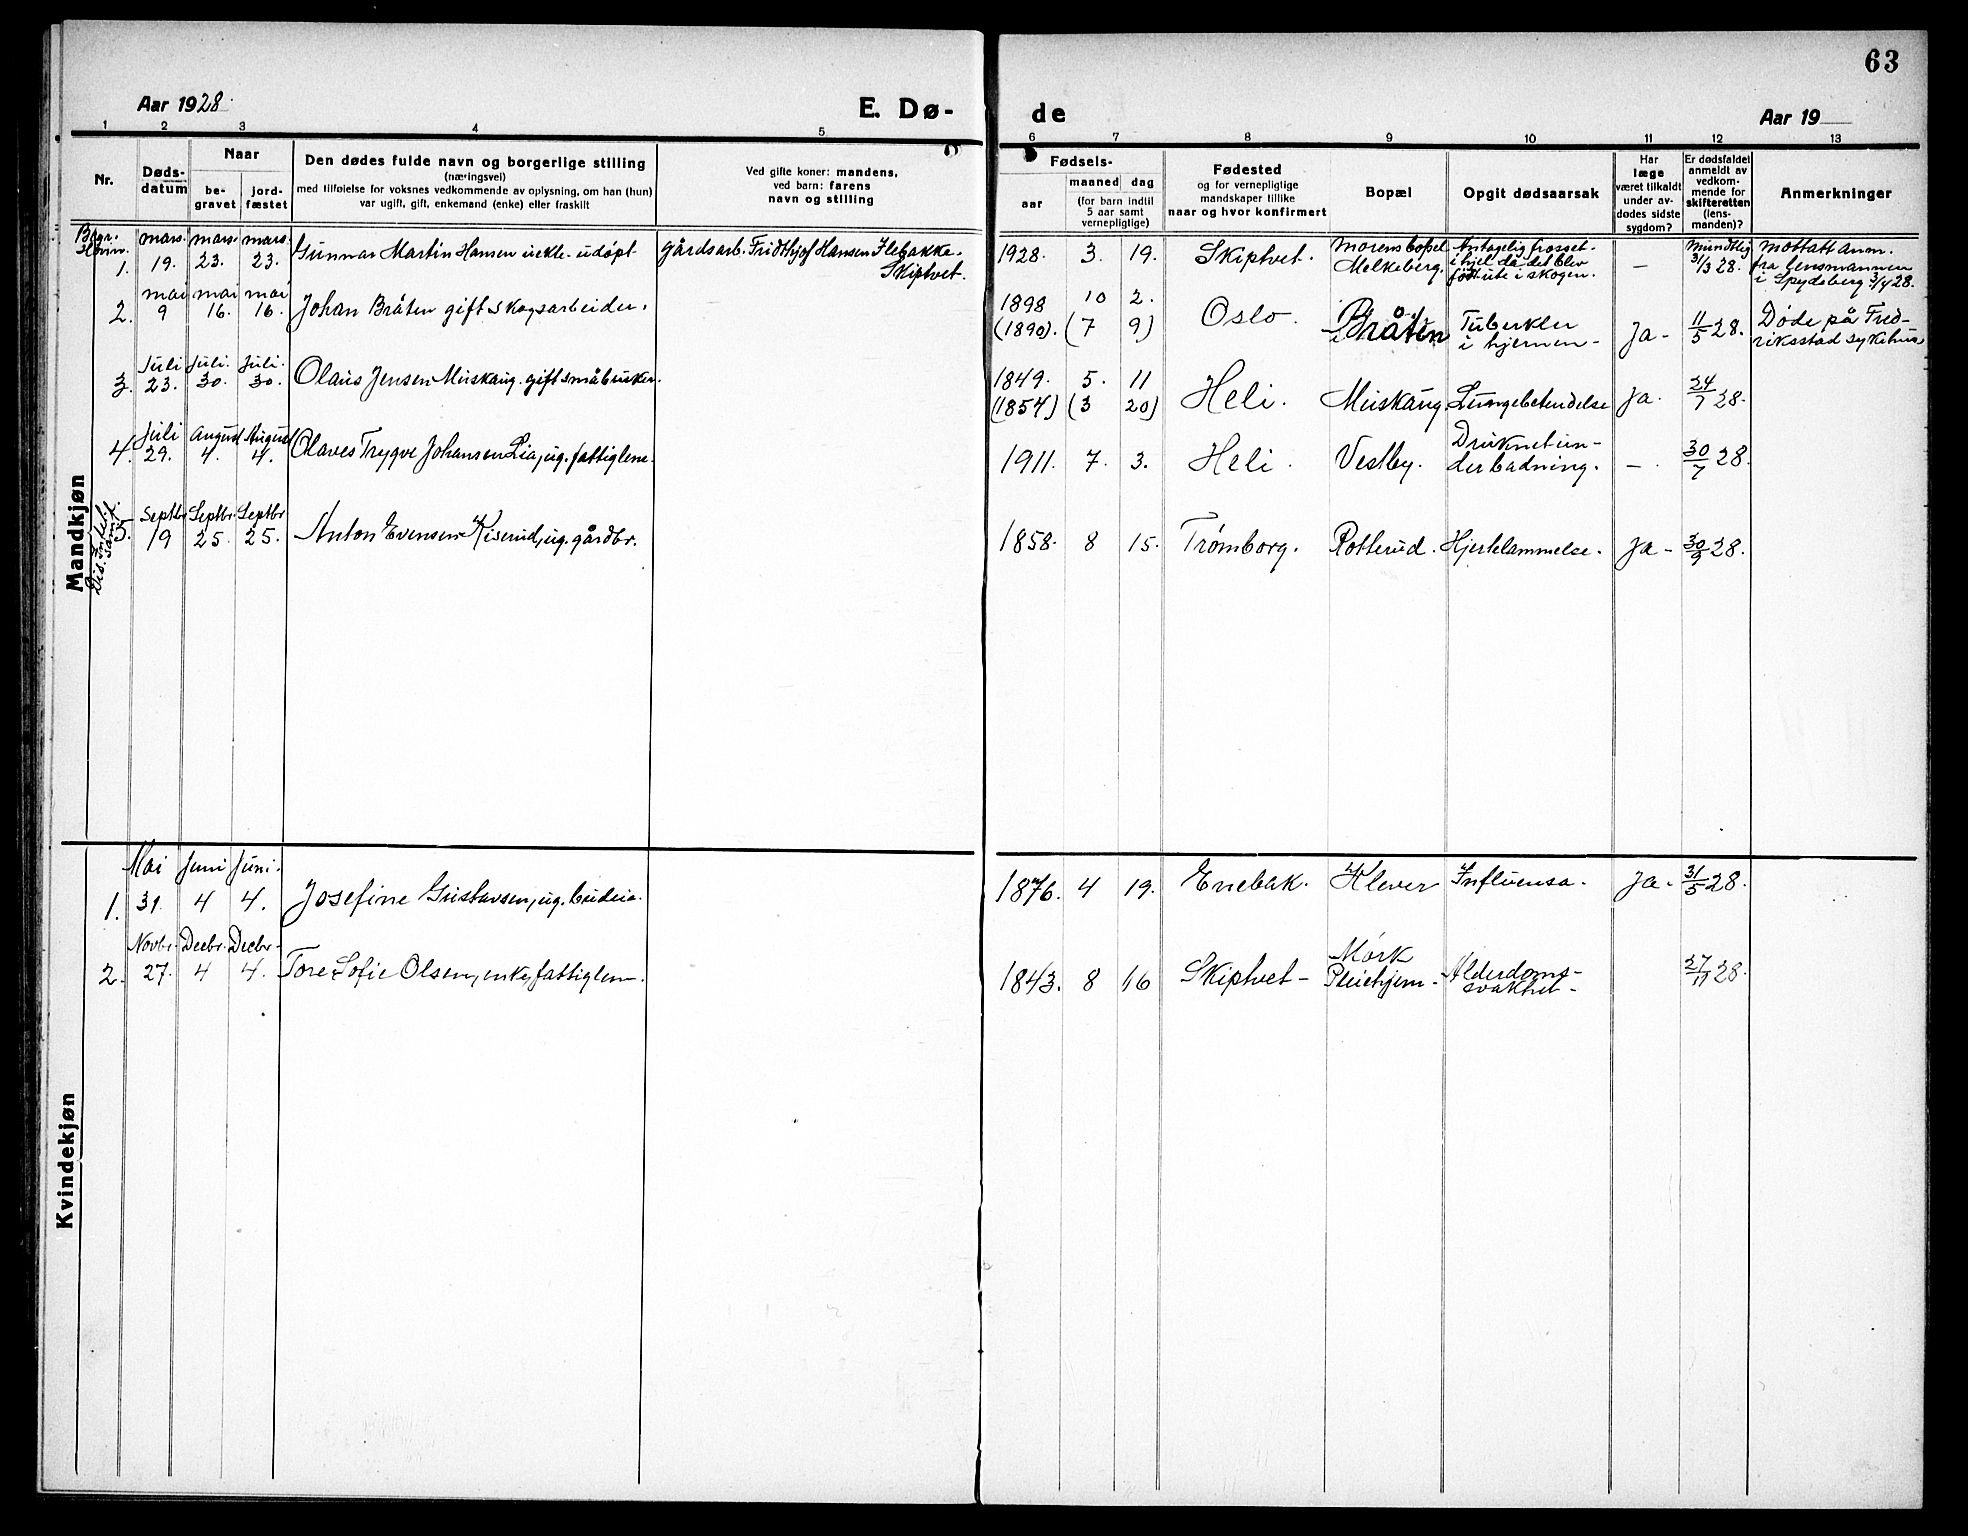 63
Aar 1928.
E. Dø-
de
Aar 19
1 2 3 4 5 6 7 8 9 10 11 12 13
Nr.
Døds-
datum
Naar
be-
gravet
jord-
fæstet
Den dødes fulde navn og borgerlige stilling
(næringsvei)
med tilføielse for voksnes vedkommende av oplysning, om han (hun)
var ugift, gift, enkemand (enke) eller fraskilt
Ved gifte koner: mandens,
ved barn: farens
navn og stilling
Fødsels-
aar
maaned dag
(for barn indtil
5 aar samt
vernepligtige)
Fødested
og for vernepligtige
mandskaper tillike
naar og hvor konfirmert
Bopæl
Opgit dødsaarsak
Har
læge
været tilkaldt
under av-
dødes sidste
sygdom?
Er dødsfaldet
anmeldt av
vedkom-
mende for
skifteretten
(lens-
manden)?
Anmerkninger
Mandkjøn
1. mars 19. mars 23. mars 23. Gunnar Martin Hansen uekte udøpt gårdsarb. Fridthjof Hansen Flebakke.
Skiptvet.
1928. 3. 19. Skiptvet. Morens bopel
Melkeberg. Antagelig frosset
ihjel da det blev
født ute i skogen. — Mundtlig
31/3 28. Mottatt anm.
fra lensmannen
i Spydeberg 3/4 28.
2. mai 9 mai 16. mai 16. Johan Bråten gift skogsarbeider.
1898 10 2.
(1890). (7 9) Oslo. Bråten Tuberkler
i hjernen - Ja - 11/5 28. Døde på Fred-
riksstad sykehus
3. Juli 23. Juli. 30. Juli. 30. Olaus Jensen Muskaug. gift småbruker.
1849. 5. 11
(1854) (3 20) Heli. Muskaug. Lungebetendelse Ja. 24/7 28.
4. Juli 29. August 4. August 4. Olaves Trygve Johansen Lia, ug. fattiglem.
1911. 7. 3. Heli. Vestby. Druknet un-
der badning. — . 30/7 28.
5. Septbr 19 Septbr. 25. Septbr 25. Anton Evensen Kiserud, ug. gårdbr.
1858. 8 15. Trømborg. Rotterud. Hjertelammelse. Ja - 30/9 28.
Kvindekjøn
1. Mai 31. Juni 4 Juni. 4. Josefine Gustavsen, ug. budeie.
1876. 4 19. Enebak. Klever Influensa. Ja - 31/5 28.
2. Novbr. 27. Decbr. 4 Decbr. 4. Tore Sofie Olsen, enke, fattiglem.
1843. 8 16 Skiptvet - Mørk
Pleiehjem - Alderdoms-
svakhet - 27/11 28.